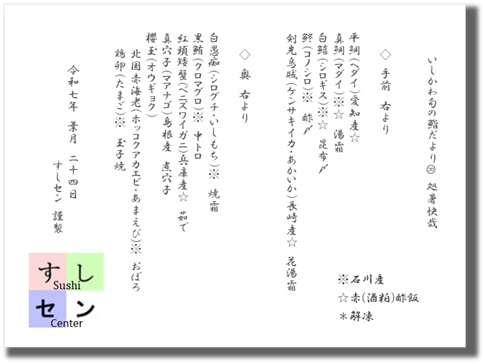 いしかわ旬の鮨だより 処暑快哉
◇ 手前 右より
平鯛(ヘダイ)愛知産☆
真鯛(マダイ)※☆ 湯霜
白鱚(シロギス)※☆ 昆布〆
鮗(コノシロ)※ 酢〆
剣先烏賊(ケンサキイカ・あかいか)長崎産☆ 花湯霜
◇ 奥 右より
白愚痴(シログチ・いしもち)※ 焼霜
黒鮪(クロマグロ)※ 中トロ
紅頭矮蟹(ベニズワイガニ)兵庫産☆ 茹で
真穴子(マアナゴ)島根産 煮穴子
櫻玉(オウギョク)
北国赤海老(ホッコクアカエビ・あまえび)※ おぼろ
鶏卵(たまご)※ 玉子焼
令和七年 葉月 二十四日
すしセン 謹製
※石川産
☆赤(酒粕)酢飯
＊解凍
すし
Sushi
セン
Center